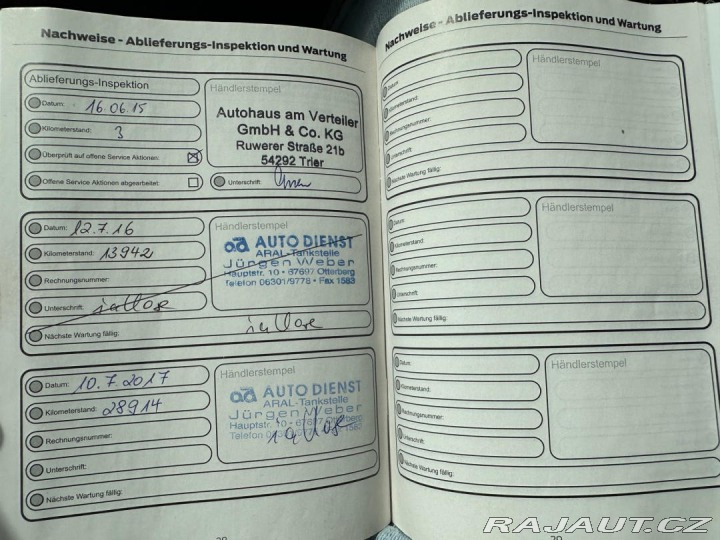 Nachweise - Ablieferungs-Inspektion und Wartung
Ablieferungs-Inspektion
Datum: 16.06.15
Kilometerstand: 3
Überprüft auf offene Service Aktionen:
Offene Service Aktionen abgearbeitet:
Händlerstempel
Autohaus am Verteiler
GmbH & Co. KG
Ruwerer Straße 21b
54292 Trier
Unterschrift:
Datum: 12.7.16
Kilometerstand: 13942
Rechnungsnummer:
Unterschrift:
Nächste Wartung fällig:
Händlerstempel
ad AUTO DIENST
ARAL-Tankstelle
Jürgen Weber
Hauptstr. 10 • 67697 Otterberg
Telefon 06301/9778 • Fax 1583
Datum: 10.7.2017
Kilometerstand: 28914
Rechnungsnummer:
Unterschrift:
Nächste Wartung fällig:
Händlerstempel
ad AUTO DIENST
ARAL-Tankstelle
Jürgen Weber
Hauptstr. 10 • 67697 Otterberg
Telefon
Nachweise - Ablieferungs-Inspektion und Wartung
Datum:
Kilometerstand:
Rechnungsnummer:
Unterschrift:
Nächste Wartung fällig:
Händlerstempel
Datum:
Kilometerstand:
Rechnungsnummer:
Unterschrift:
Nächste Wartung fällig:
Händlerstempel
Datum:
Kilometerstand:
Rechnungsnummer:
Unterschrift:
Nächste Wartung fällig:
Händlerstempel
RAJAUT.CZ